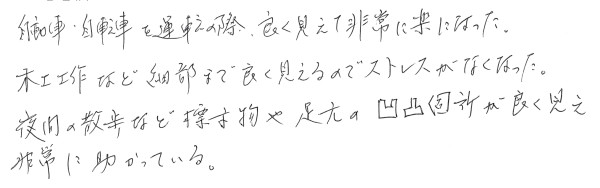 自動車・自転車を運転の際、良く見えて非常に楽になった。
木工工作など細部まで良く見えるのでストレスがなくなった。
夜間の散歩など標示物や足元の凹凸個所が良く見え
非常に助かっている。